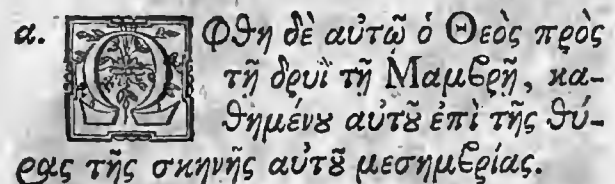 α. ΩΦθη δὲ αὐτῷ ὁ Θεὸς πρὸς
τῇ δρυῒ τῇ Μαμβρῇ, κα-
θημένου αὐτοῦ ἐπὶ τῆς θύ-
ρας τῆς σκηνῆς αὐτοῦ μεσημβρίας.